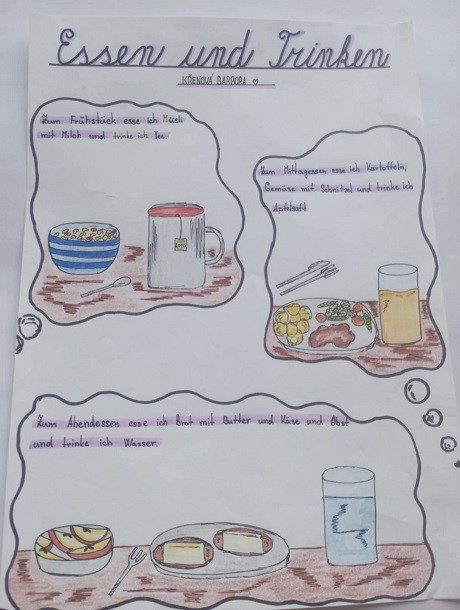 Essen und Trinken
KŘENOVÁ BARBORA ♡
Zum Frühstück esse ich Müsli
mit Milch und trinke ich Tee.
Zum Mittagessen esse ich Kartoffeln,
Gemüse mit Schnitzel und trinke ich
Apfelsaft.
Zum Abendessen esse ich Brot mit Butter und Käse und Obst
und trinke ich Wasser.